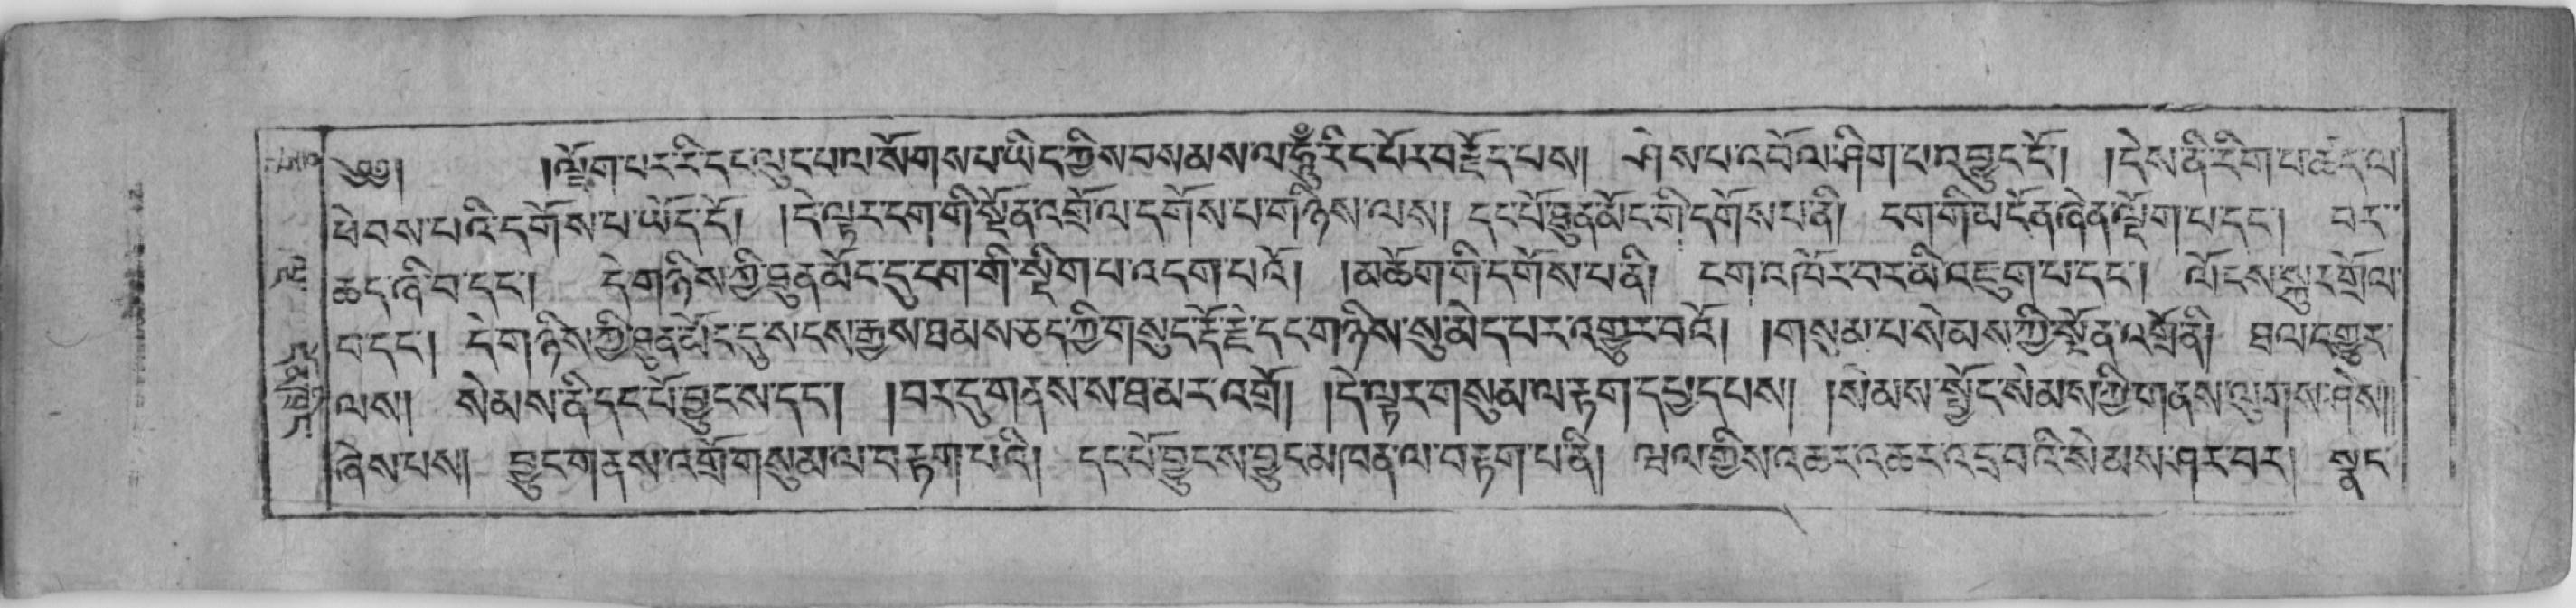 ༄༅། །ལྡོག་པར་རི་དང་ལུང་པ་ལ་སོགས་པ་ཡིད་ཀྱིས་བསམས་ལ་ཧཱུྃ་རིང་པོར་བརྗོད་པས། ཤེས་པ་འབོལ་ཤིག་པ་འབྱུང་ངོ་། །དེས་ནི་རིག་པ་ཚད་ལ་
ཕེབས་པའི་དགོས་པ་ཡོད་དོ། །དེ་ལྟར་ངག་གི་སྔོན་འགྲོ་ལ་དགོས་པ་གཉིས་ལས། དང་པོ་ཐུན་མོང་གི་དགོས་པ་ནི། ངག་གི་མངོན་ཞེན་ལྡོག་པ་དང་། བར་
ཆད་ཞི་བ་དང་། དེ་གཉིས་ཀྱི་ཐུན་མོང་དུ་ངག་གི་སྡིག་པ་འདག་པའོ། །མཆོག་གི་དགོས་པ་ནི། ངག་འཁོར་བར་མི་འཇུག་པ་དང་། ལོངས་སྐུར་གྲོལ་
བ་དང་། དེ་གཉིས་ཀྱི་ཐུན་མོང་དུ་སངས་རྒྱས་ཐམས་ཅད་ཀྱི་གསུང་རྡོ་རྗེ་དང་གཉིས་སུ་མེད་པར་འགྱུར་བའོ། །གསུམ་པ་སེམས་ཀྱི་སྔོན་འགྲོ་ནི། ཐལ་འགྱུར་
ལས། སེམས་ནི་དང་པོ་བྱུང་ས་དང་། །བར་དུ་གནས་ས་ཐ་མར་འགྲོ། །དེ་ལྟར་གསུམ་ལ་རྟག་དཔྱད་པས། །སེམས་སྦྱོང་སེམས་ཀྱི་གནས་ལུགས་ཤེས།།
ཞེས་པས། བྱུང་གནས་འགྲོ་གསུམ་ལ་བརྟག་པའི། དང་པོ་བྱུང་ས་བྱུང་མཁན་ལ་བརྟག་པ་ནི། ཝལ་གྱིས་འཆར་འཆར་འདྲ་བའི་སེམས་ཤར་བར། སྣང་